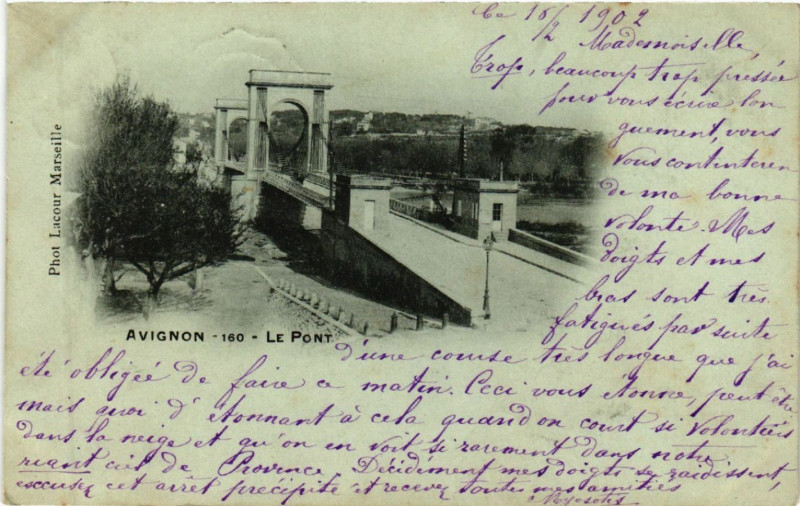 Ce 16/2 1902
Mademoiselle,
Trop, beaucoup trop pressée
pour vous écrire lon
guement, vous
vous contenterez
de ma bonne
volonté. Mes
doigts et mes
bras sont très
fatigués par suite
d'une course très longue que j'ai
été obligée de faire ce matin. Ceci vous étonne, peut être
mais quoi d'étonnant à cela quand on court si volontiers
dans la neige et qu'on en voit si rarement dans notre
riant ciel de Provence. Décidément mes doigts se raidissent,
excusez cet arrêt précipité et recevez toutes mes amitiés
Myosotis
Phot Lacour Marseille
AVIGNON - 160 - LE PONT